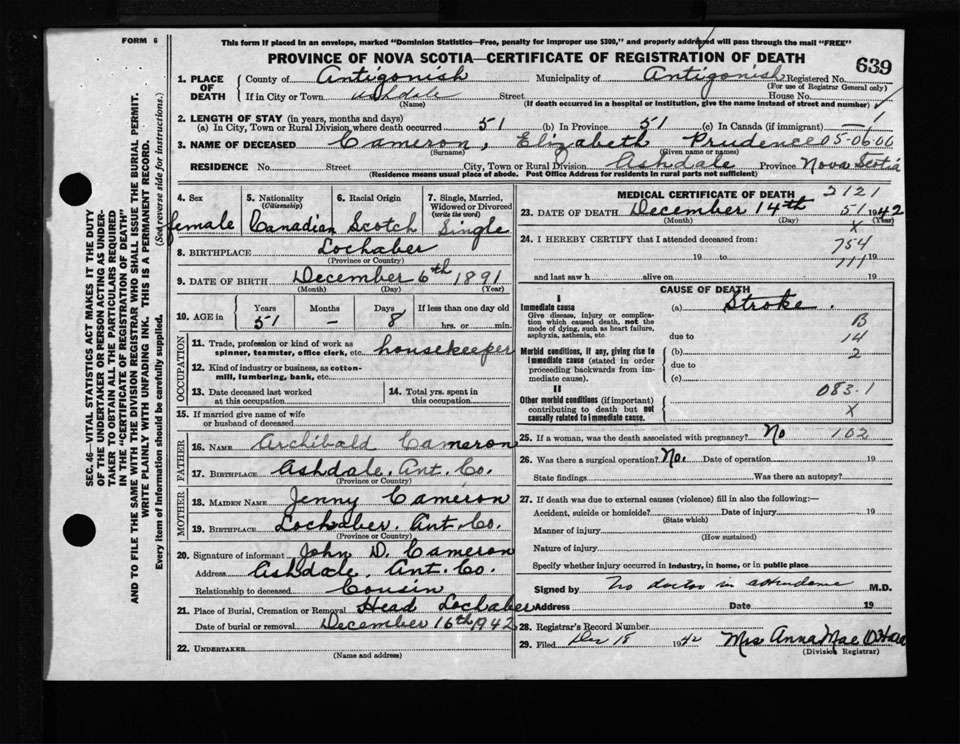 FORM 6
This form if placed in an envelope, marked "Dominion Statistics—Free, penalty for improper use $300," and properly addressed will pass through the mail "FREE"
PROVINCE OF NOVA SCOTIA—CERTIFICATE OF REGISTRATION OF DEATH
639
1. PLACE OF DEATH County of Antigonish Municipality of Antigonish Registered No.
(For use of Registrar General only)
If in City or Town Ashdale Street House No.
(Name) (If death occurred in a hospital or institution, give the name instead of street and number)
2. LENGTH OF STAY (in years, months and days)
(a) In City, Town or Rural Division where death occurred 51 (b) In Province 51 (c) In Canada (if immigrant) — 1
3. NAME OF DECEASED Cameron, Elizabeth Prudence 05-06-00
(Surname) (Given name or names)
RESIDENCE No. Street City, Town or Rural Division Ashdale Province Nova Scotia
(Residence means usual place of abode. Post Office Address for residents in rural parts not sufficient)
SEC. 46—VITAL STATISTICS ACT MAKES IT THE DUTY
OF THE UNDERTAKER OR PERSON ACTING AS UNDER-
TAKER TO OBTAIN ALL THE PARTICULARS REQUIRED
IN THE "CERTIFICATE OF REGISTRATION OF DEATH"
AND TO FILE THE SAME WITH THE DIVISION REGISTRAR WHO SHALL ISSUE THE BURIAL PERMIT.
WRITE PLAINLY WITH UNFADING INK. THIS IS A PERMANENT RECORD.
Every item of Information should be carefully supplied. (See reverse side for instructions.)
4. Sex female
5. Nationality (Citizenship) Canadian
6. Racial Origin Scotch
7. Single, Married, Widowed or Divorced (write the word) Single
8. BIRTHPLACE Lochaber
(Province or Country)
9. DATE OF BIRTH December 6th 1891
(Month) (Day) (Year)
10. AGE in Years 51 Months — Days 8 If less than one day old hrs. or min.
OCCUPATION
11. Trade, profession or kind of work as spinner, teamster, office clerk, etc. housekeeper
12. Kind of industry or business, as cotton-mill, lumbering, bank, etc.
13. Date deceased last worked at this occupation
14. Total yrs. spent in this occupation
15. If married give name of wife or husband of deceased
FATHER
16. NAME Archibald Cameron
17. BIRTHPLACE Ashdale. Ant. Co.
(Province or Country)
MOTHER
18. MAIDEN NAME Jenny Cameron
19. BIRTHPLACE Lochaber. Ant. Co.
(Province or Country)
20. Signature of informant John D. Cameron
Address Ashdale, Ant. Co.
Relationship to deceased Cousin
21. Place of Burial, Cremation or Removal Head Lochaber
Date of burial or removal December 16th 1942
22. UNDERTAKER
(Name and address)
MEDICAL CERTIFICATE OF DEATH 2121
23. DATE OF DEATH December 14th 51 1942
(Month) (Day) (Year)
X
24. I HEREBY CERTIFY that I attended deceased from: 754
19 to 19
711
and last saw h alive on 19
CAUSE OF DEATH
I
Immediate cause (a) Stroke.
Give disease, injury or complication which caused death, not the mode of dying, such as heart failure, asphyxia, asthenia, etc.
B
due to 14
Morbid conditions, if any, giving rise to immediate cause (stated in order proceeding backwards from immediate cause).
(b) 2
due to
(c)
II
083.1
Other morbid conditions (if important) contributing to death but not causally related to immediate cause.
X
25. If a woman, was the death associated with pregnancy? No 102
26. Was there a surgical operation? No. Date of operation 19
State findings Was there an autopsy?
27. If death was due to external causes (violence) fill in also the following:—
Accident, suicide or homicide? Date of injury 19
(State which)
Manner of injury
(How sustained)
Nature of injury
Specify whether injury occurred in industry, in home, or in public place
Signed by No doctor in attendance M.D.
Address Date 19
28. Registrar's Record Number
29. Filed Dec 18 1942 Mrs Anna Mae O'Hare
(Division Registrar)